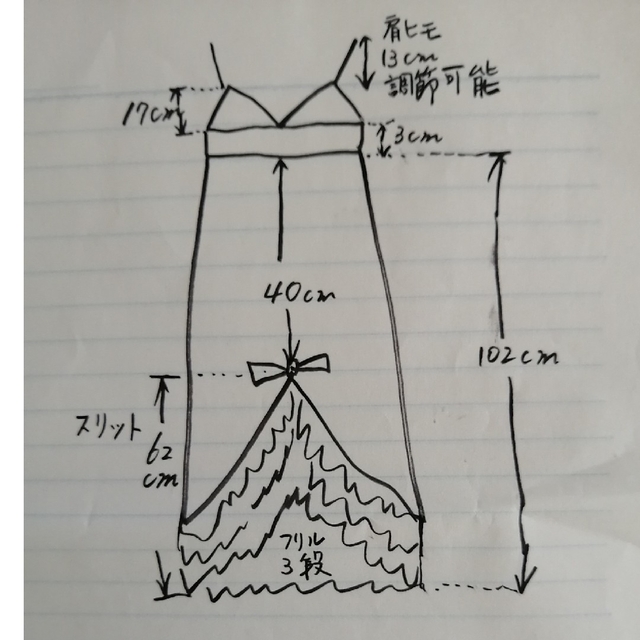 肩ヒモ
13cm
調節可能
17cm
3cm
40cm
102cm
スリット
62
cm
フリル
3段